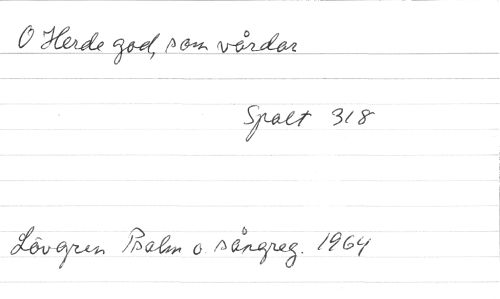 O Herde god, som vårdar
Spalt 318
Lövgren Psalm o. sångreg. 1964